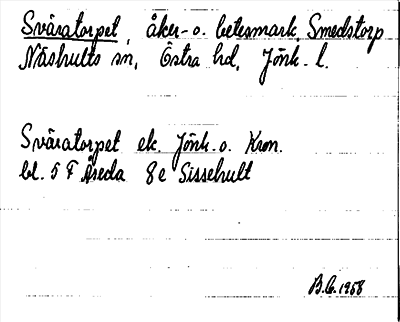 Svåratorpet, åker- o. betesmark, Smedstorp
Näshults sn, Östra hd, Jönk. l.
Svåratorpet ek. Jönk. o. Kron.
bl. 5 F Åseda 8e Sissehult
B.G. 1958